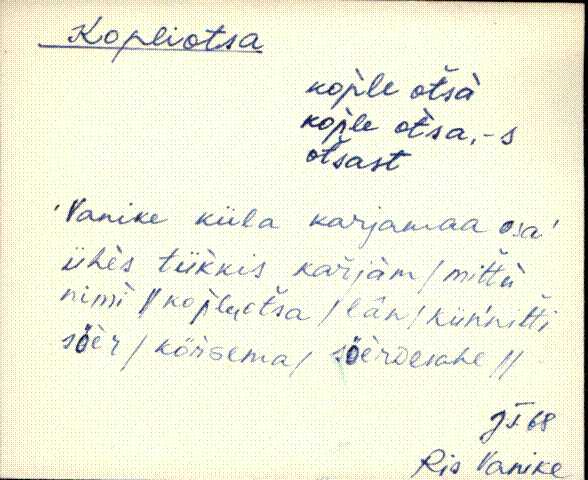 Kopliotsa
kop̀le otšà
kop̀le otsa, -s
otšast
'Vanike küla karjamaa osa'
ühès tük̀kis kařjàm / mit̆tù
nimì // kop̀le otša / lǟn / kün'nit̆ti
söèr / kõrgema / söèrdesahe //
JŠ 68
Ris Vanike